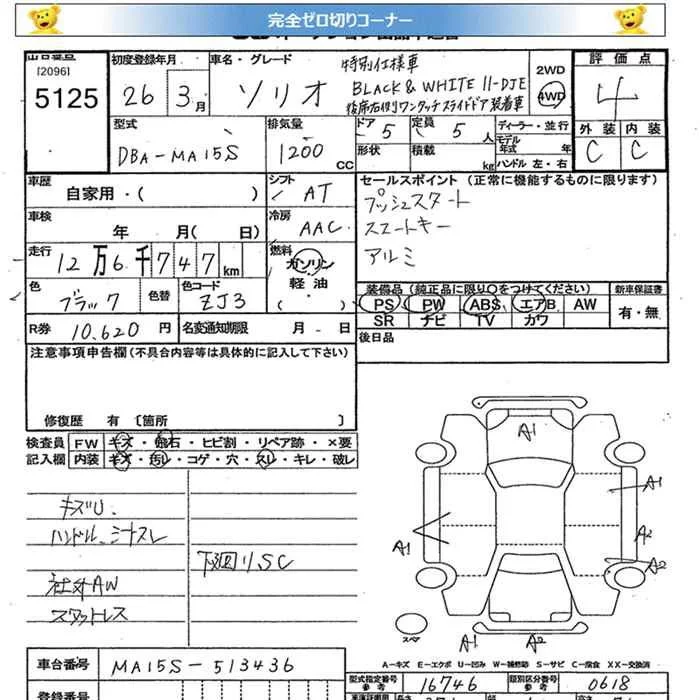 完全ゼロ切りコーナー
出品番号
[2096]
5125
初度登録年月
26年 3月
車名・グレード
ソリオ
特別仕様車
BLACK & WHITE II-DJE
後席右側ワンタッチスライドドア装着車
2WD
4WD
評価点
4
外装 内装
C C
型式
DBA-MA15S
排気量
1200 CC
ドア 5
定員 5 人
形状
積載 kg
ディーラー・並行
モデル年式 年
ハンドル 左・右
車歴
自家用・( )
シフト
AT
車検
年 月( 日)
冷房
AAC
走行
12万6千747km
燃料
ガソリン
軽油
( )
色
ブラック
色替
色コード
ZJ3
R券
10,620円
名変通知期限
月 - 日
セールスポイント (正常に機能するものに限ります)
プッシュスタート
スマートキー
アルミ
装備品(純正品に限り○をつけてください)
PS PW ABS エアB AW
SR ナビ TV カワ
新車保証書
有・無
後日品
注意事項申告欄(不具合内容等は具体的に記入して下さい)
修復歴 有 〔箇所 〕
検査員 FW キズ・飛石・ヒビ割・リペア跡・×要
記入欄 内装 キズ・汚レ・コゲ・穴・スレ・キレ・破レ
キズU
ハンドル、シナスレ
下廻リ、SC
社外AW
スタットレス
A1
A1
A1
A2
A2
スペア
A1 A2
A－キズ E－エクボ U－凹み W－補修跡 S－サビ C－腐食 XX－交換済
車台番号
MA15S-513436
型式指定番号
参考
16746
類別区分番号
参考
0618
登録番号
長さ
幅
高さ